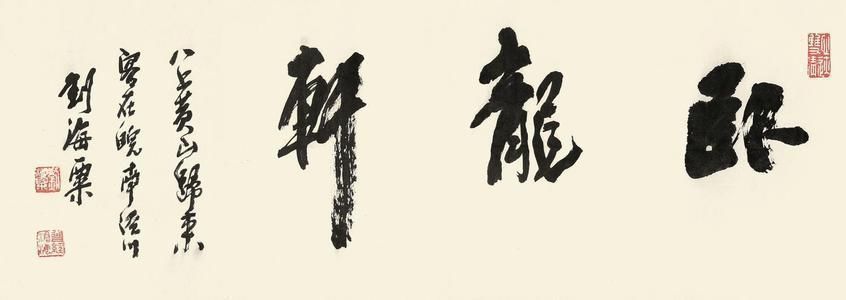 臥龍軒
八上黄山歸來
寫在皖南涇川
劉海粟